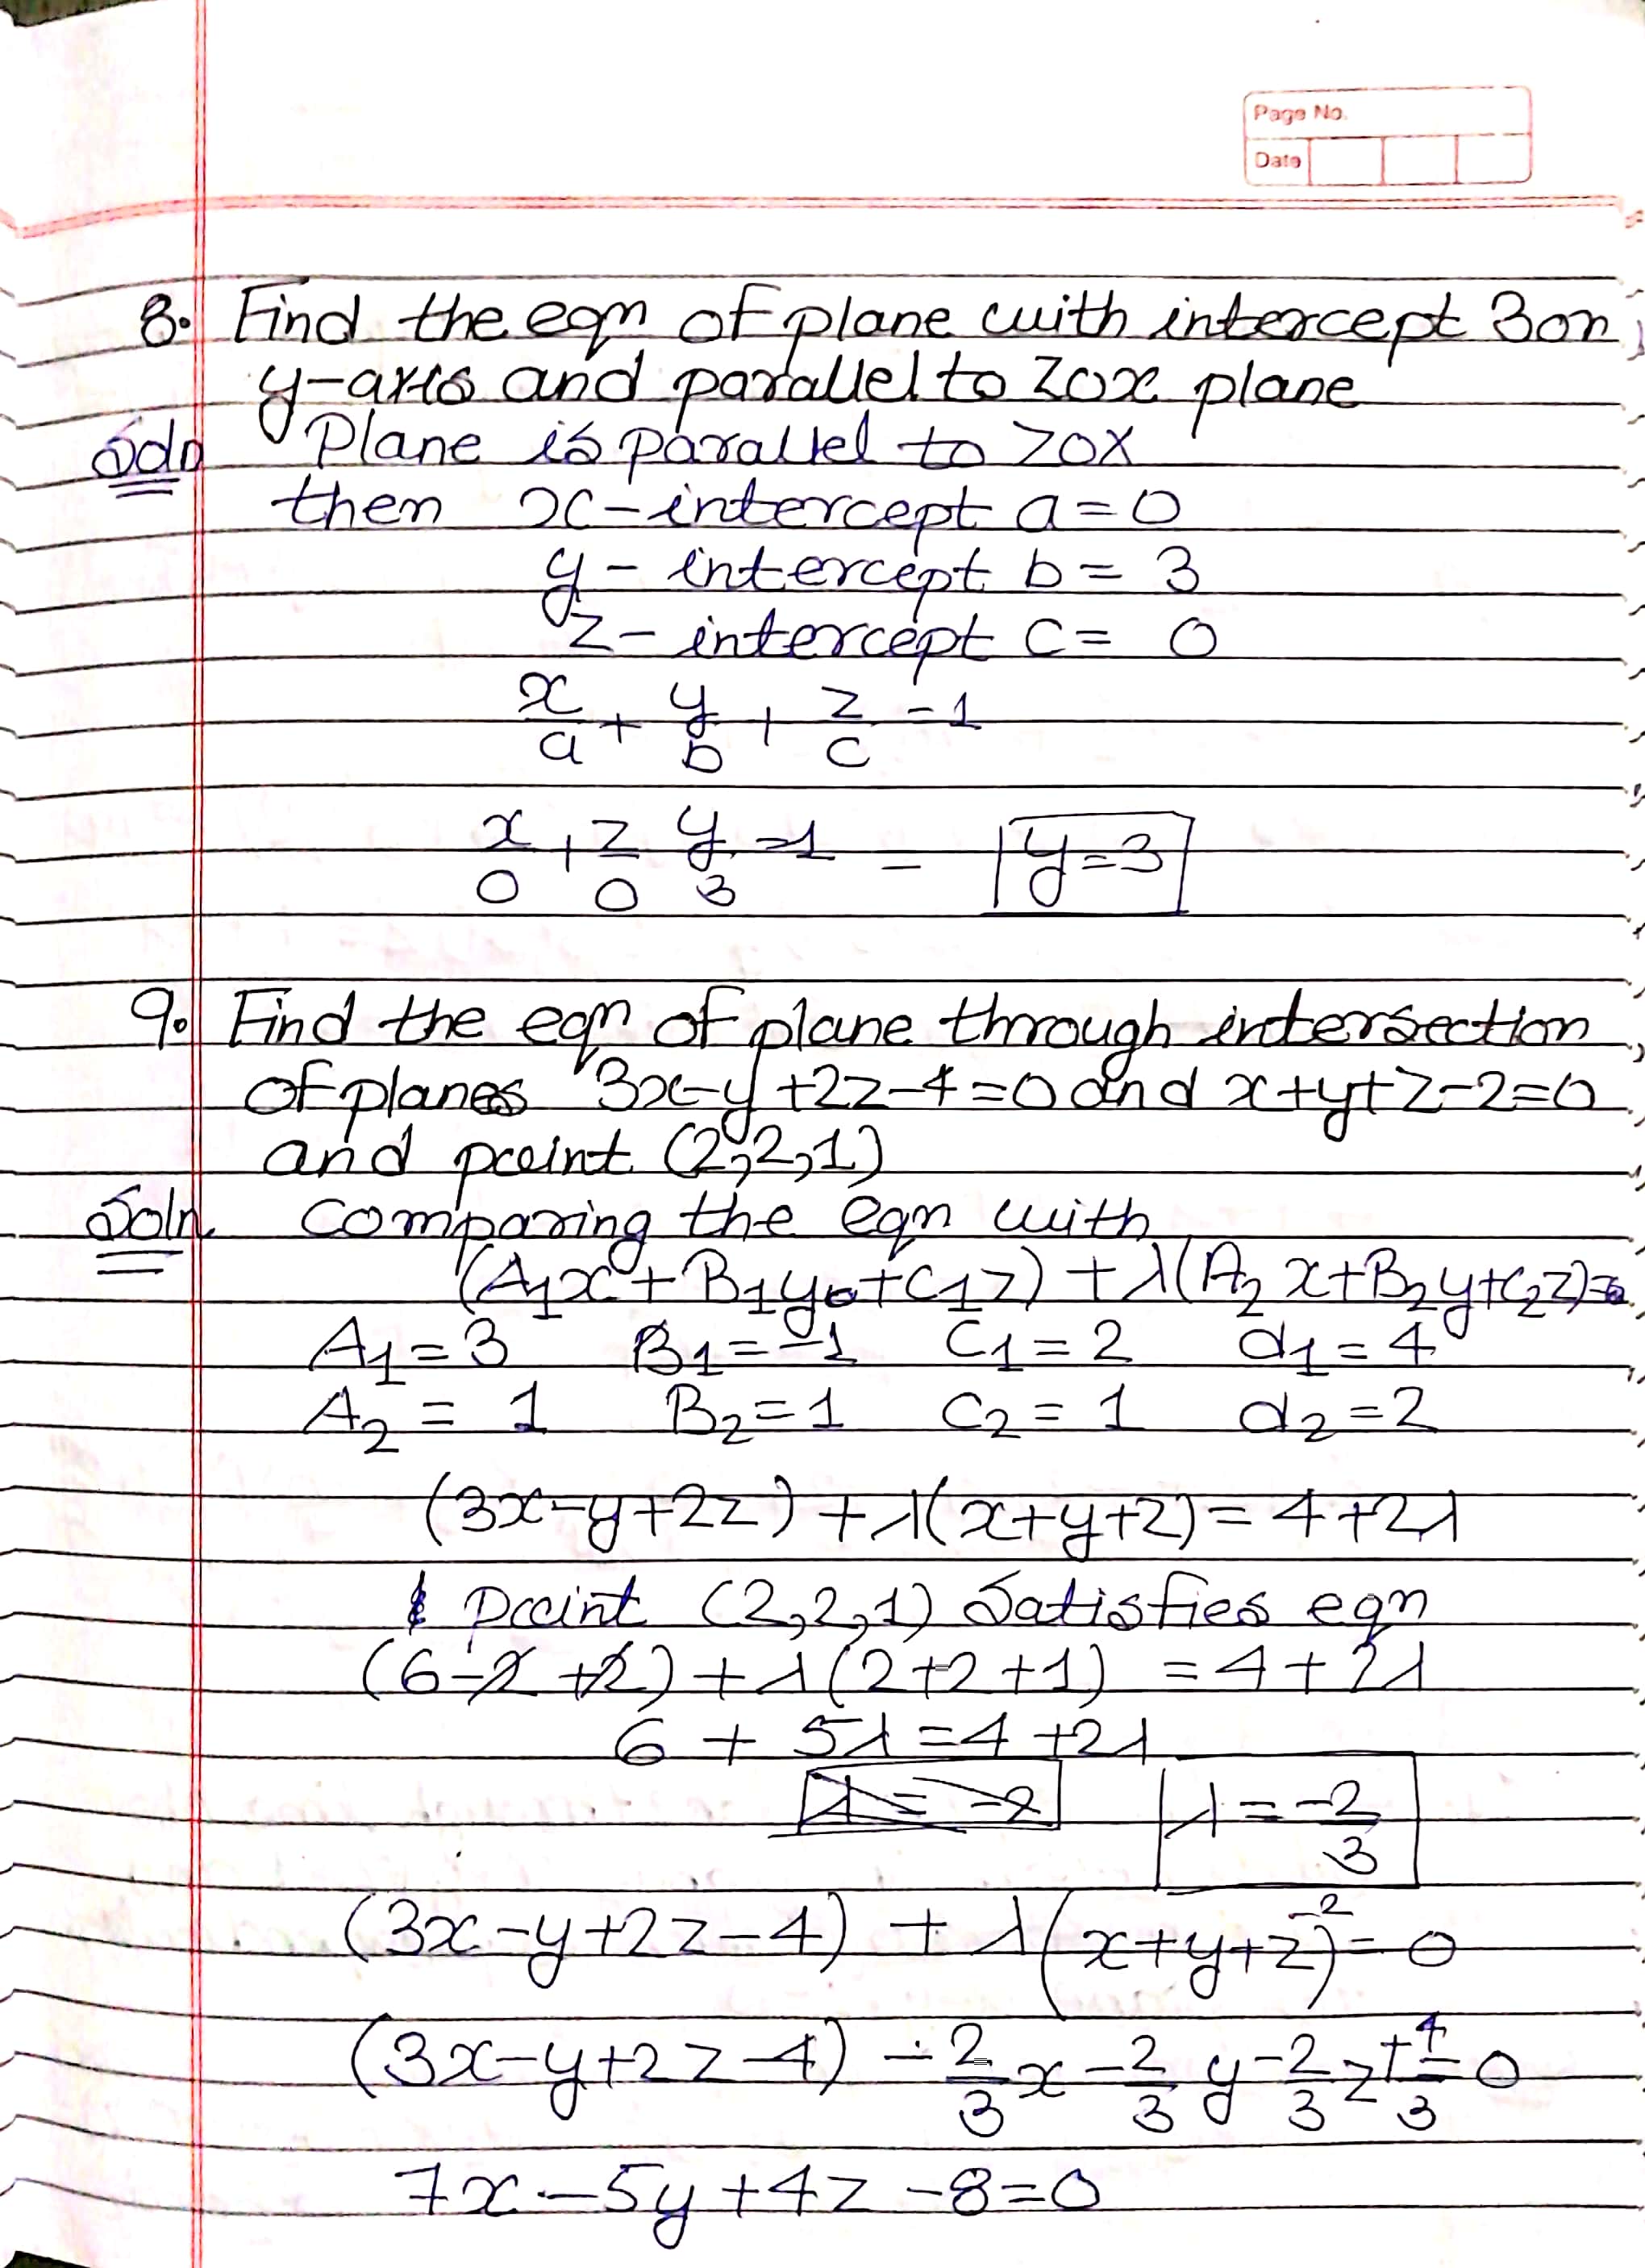 Page No.
Date
8. Find the eqn of plane with intercept 3 on
y-axis and parallel to ZOX plane
Soln Plane is parallel to ZOX
then x-intercept a=0
y-intercept b=3
z-intercept c=0
x/a + y/b + z/c = 1
x/0 + z/0 y/3 = 1 - y=3
9. Find the eqn of plane through intersection
of planes 3x-y+2z-4=0 and x+y+z-2=0
and point (2,2,1)
Soln Comparing the eqn with
(A₁x+B₁y+C₁z)+λ(A₂x+B₂y+C₂z)=0
A₁=3 B₁=-1 C₁=2 d₁=4
A₂=1 B₂=1 C₂=1 d₂=2
(3x-y+2z)+λ(x+y+z)=4+2λ
point (2,2,1) Satisfies eqn
(6-2+2)+λ(2+2+1)=4+2λ
6+5λ=4+2λ
λ=-2 λ=-2/3
(3x-y+2z-4)+λ(x+y+z-2)=0
(3x-y+2z-4)-2/3x-2/3y-2/3z+4/3=0
7x-5y+4z-8=0